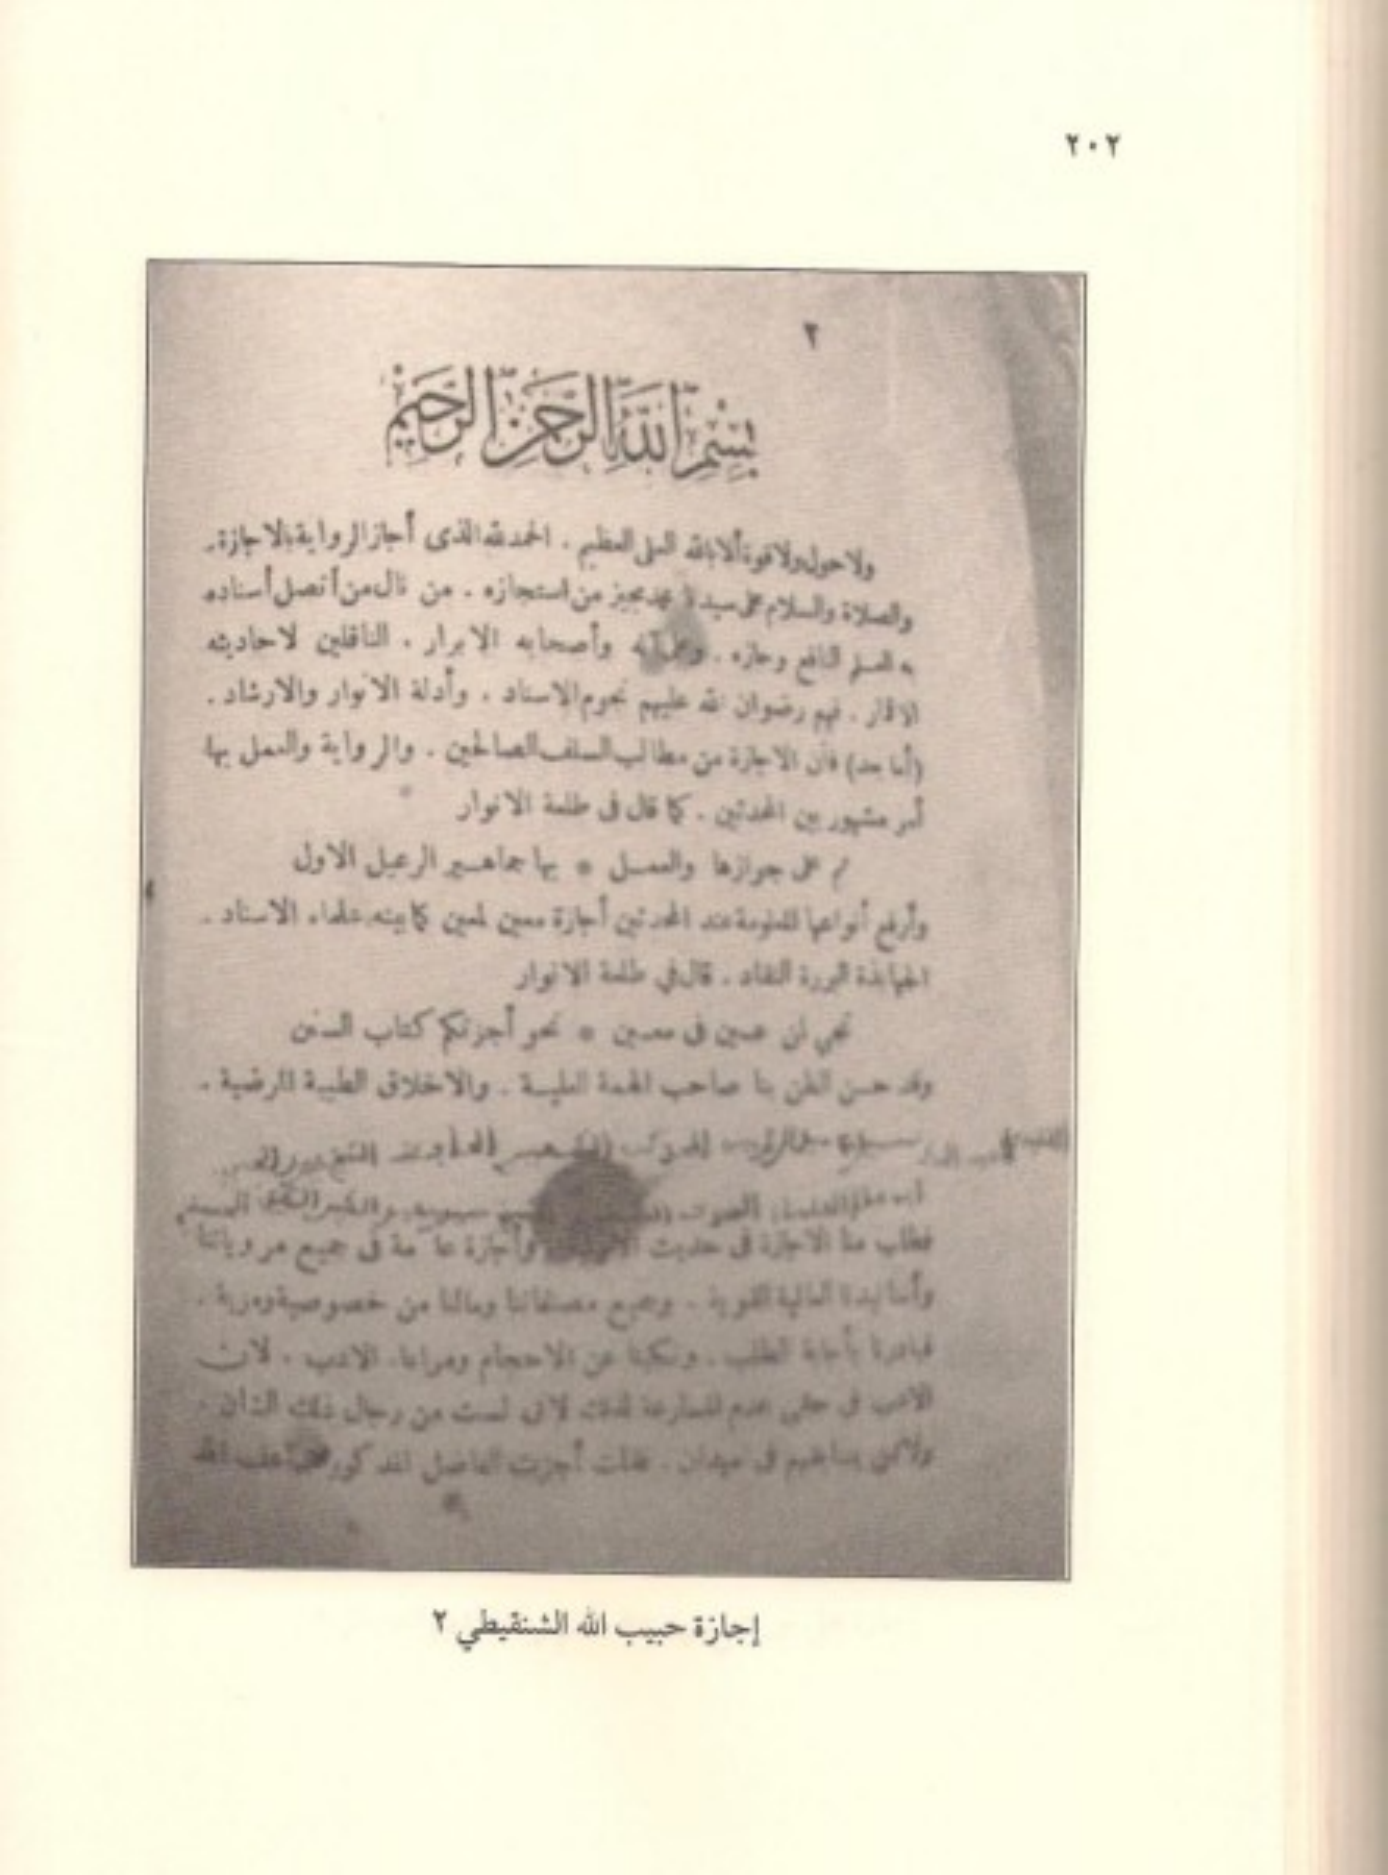 ٢٠٢
٢
بسم الله الرحمن الرحيم
ولا حول ولا قوة ألا بالله العلى العظيم . الحمد لله الذى أجاز الرواية بالاجازة .
والصلاة والسلام على سيدنا محمد مجيز من استجازه . من نال من أتصل أسناده
به العلم النافع وحازه . وعلى آله وأصحابه الابرار . الناقلين لاحاديثه
فهم رضوان الله عليهم نجوم الاسناد . وأدلة الانوار والارشاد .
(أما بعد) فأن الاجازة من مطالب السلف الصالحين . والرواية والعمل بها
أمر مشهور بين المحدثين . كما قال فى طلعة الانوار
على جوازها والعمل * بها جماهير الرعيل الاول
وأرفع أنواعها المعلومة عند المحدثين أجازة معين لمعين كما بينه علماء الاسناد .
الجهابذة البررة النقاد . قال في طلعة الانوار
عين فى معين * نحو أجزتكم كتاب السنن
وقد حسن الظن بنا صاحب الهمة العلية . والاخلاق الطيبة المرضية .
فطلب منا الاجازة فى حديث وأجازة عامة فى جميع مروياتنا
وأسانيدنا العالية القوية . وجميع مصنفاتنا ومالنا من خصوصية ومزية .
فبادرنا بأجابة الطلب . ونكبنا عن الاحجام ومراعاة الادب . لان
الادب فى حقى عدم المسارعة لذلك لانى لست من رجال ذلك الشان .
فى ميدان . فقلت أجزت الفاضل المذكور
إجازة حبيب الله الشنقيطي ٢